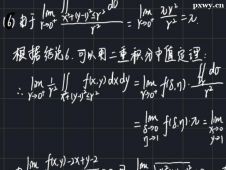 pxwy.cn
(6) 由于 lim_{r→0⁺} ∬_{x²+(y-1)²≤r²} dσ / r² = lim_{r→0⁺} πr²/r² = π.
根据结论6. 可以用二重积分中值定理:
∴ lim_{r→0⁺} 1/r² ∬_{x²+(y-1)²≤r²} f(x,y)dxdy = lim_{r→0⁺} f(δ,η)·∬dσ / r²
= lim_{δ→0, η→1} f(δ,η)·π = lim_{x→0, y→1}
lim f(x,y)-2x+y-2